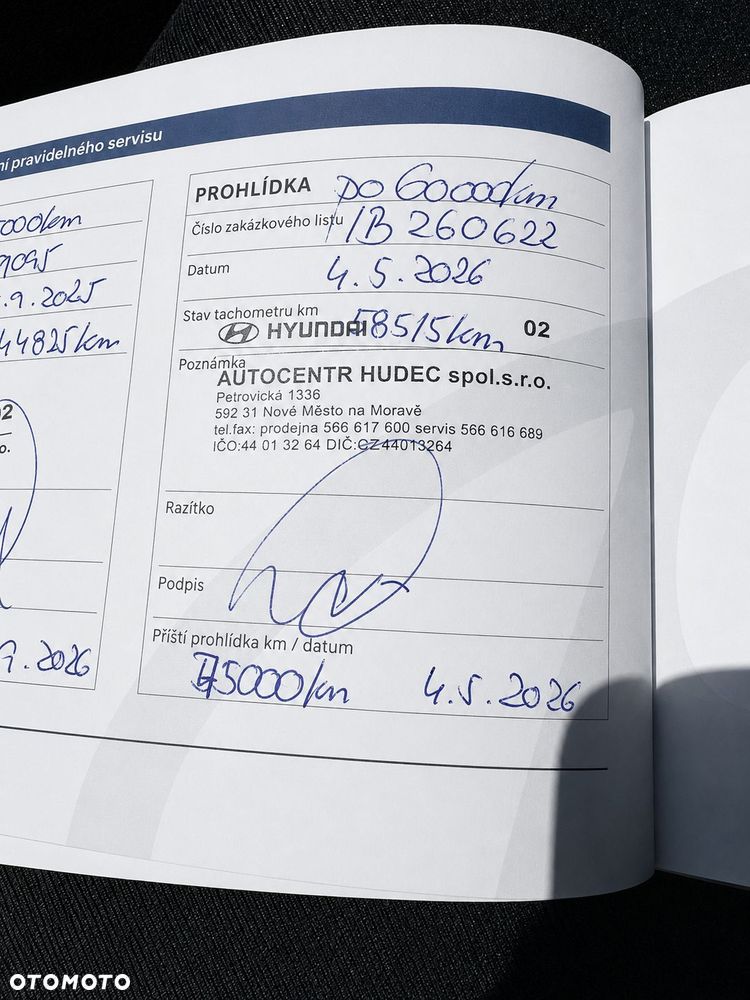 ní pravidelného servisu
000km
9095
.9.2025
44825km
02
o.
9.2026
PROHLÍDKA PO 60000km
Číslo zakázkového listu 1B 260622
Datum 4.5.2026
Stav tachometru km 58515km
HYUNDAI 02
Poznámka
AUTOCENTR HUDEC spol.s.r.o.
Petrovická 1336
592 31 Nové Město na Moravě
tel.fax: prodejna 566 617 600 servis 566 616 689
IČO:44 01 32 64 DIČ:CZ44013264
Razítko
Podpis
Příští prohlídka km / datum
75000km 4.5.2026
OTOMOTO